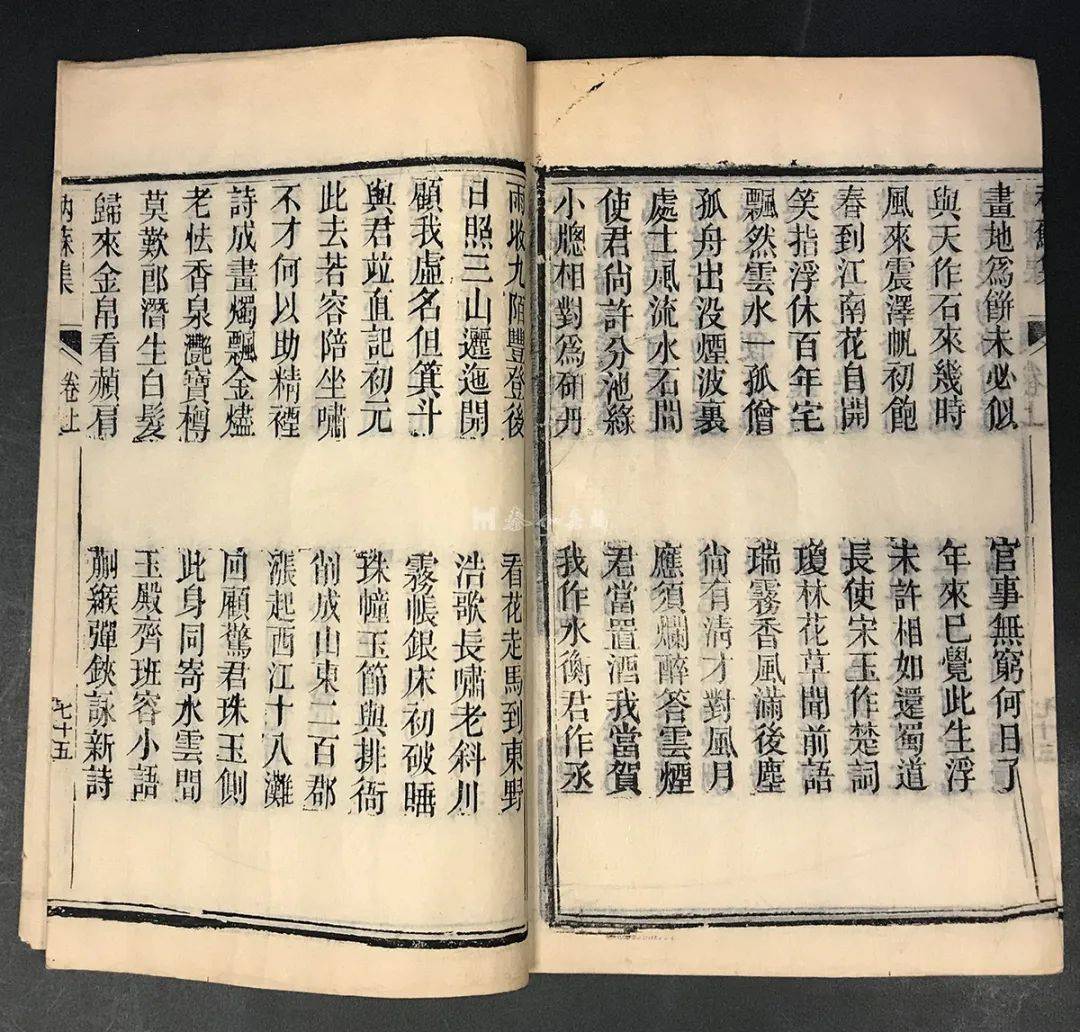 畫地爲餅未必似　官事無窮何日了
與天作石來幾時　年來已覺此生浮
風來震澤帆初飽　未許相如還蜀道
春到江南花自開　長使宋玉作楚詞
笑指浮休百年宅　瓊林花草聞前語
飄然雲水一孤僧　瑞霧香風滿後塵
孤舟出没煙波裏　尚有清才對風月
處士風流水石間　應須爛醉答雲煙
使君尚許分池綠　君當置酒我當賀
小牕相對爲研丹　我作水衡君作丞
雨收九陌豐登後　看花走馬到東野
日照三山邐迤開　浩歌長嘯老斜川
顧我虛名但箕斗　霧帳銀床初破睡
與君竝直記初元　珠幢玉節與排衙
此去若容陪坐嘯　削成山東二百郡
不才何以助精禋　漲起西江十八灘
詩成畫燭飄金燼　回顧驚君珠玉側
老怯香泉灔寶樽　此身同寄水雲間
莫歎郎潛生白髮　玉殿齊班容小語
歸來金帛看赬肩　蒯緱彈鋏詠新詩
衲蘇集　卷上　七十五